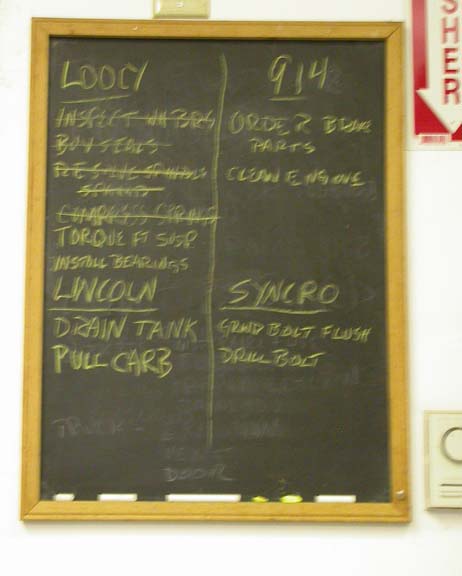 LOOCY
INSPECT WH BRGS
BUY SEALS
COMPRESS SPRINGS
TORQUE FT SUSP
INSTALL BEARINGS
LINCOLN
DRAIN TANK
PULL CARB
914
ORDER BRAKE
PARTS
CLEAN ENGINE
SYNCRO
GRIND BOLT FLUSH
DRILL BOLT
TRUCK
DOOR
SHER